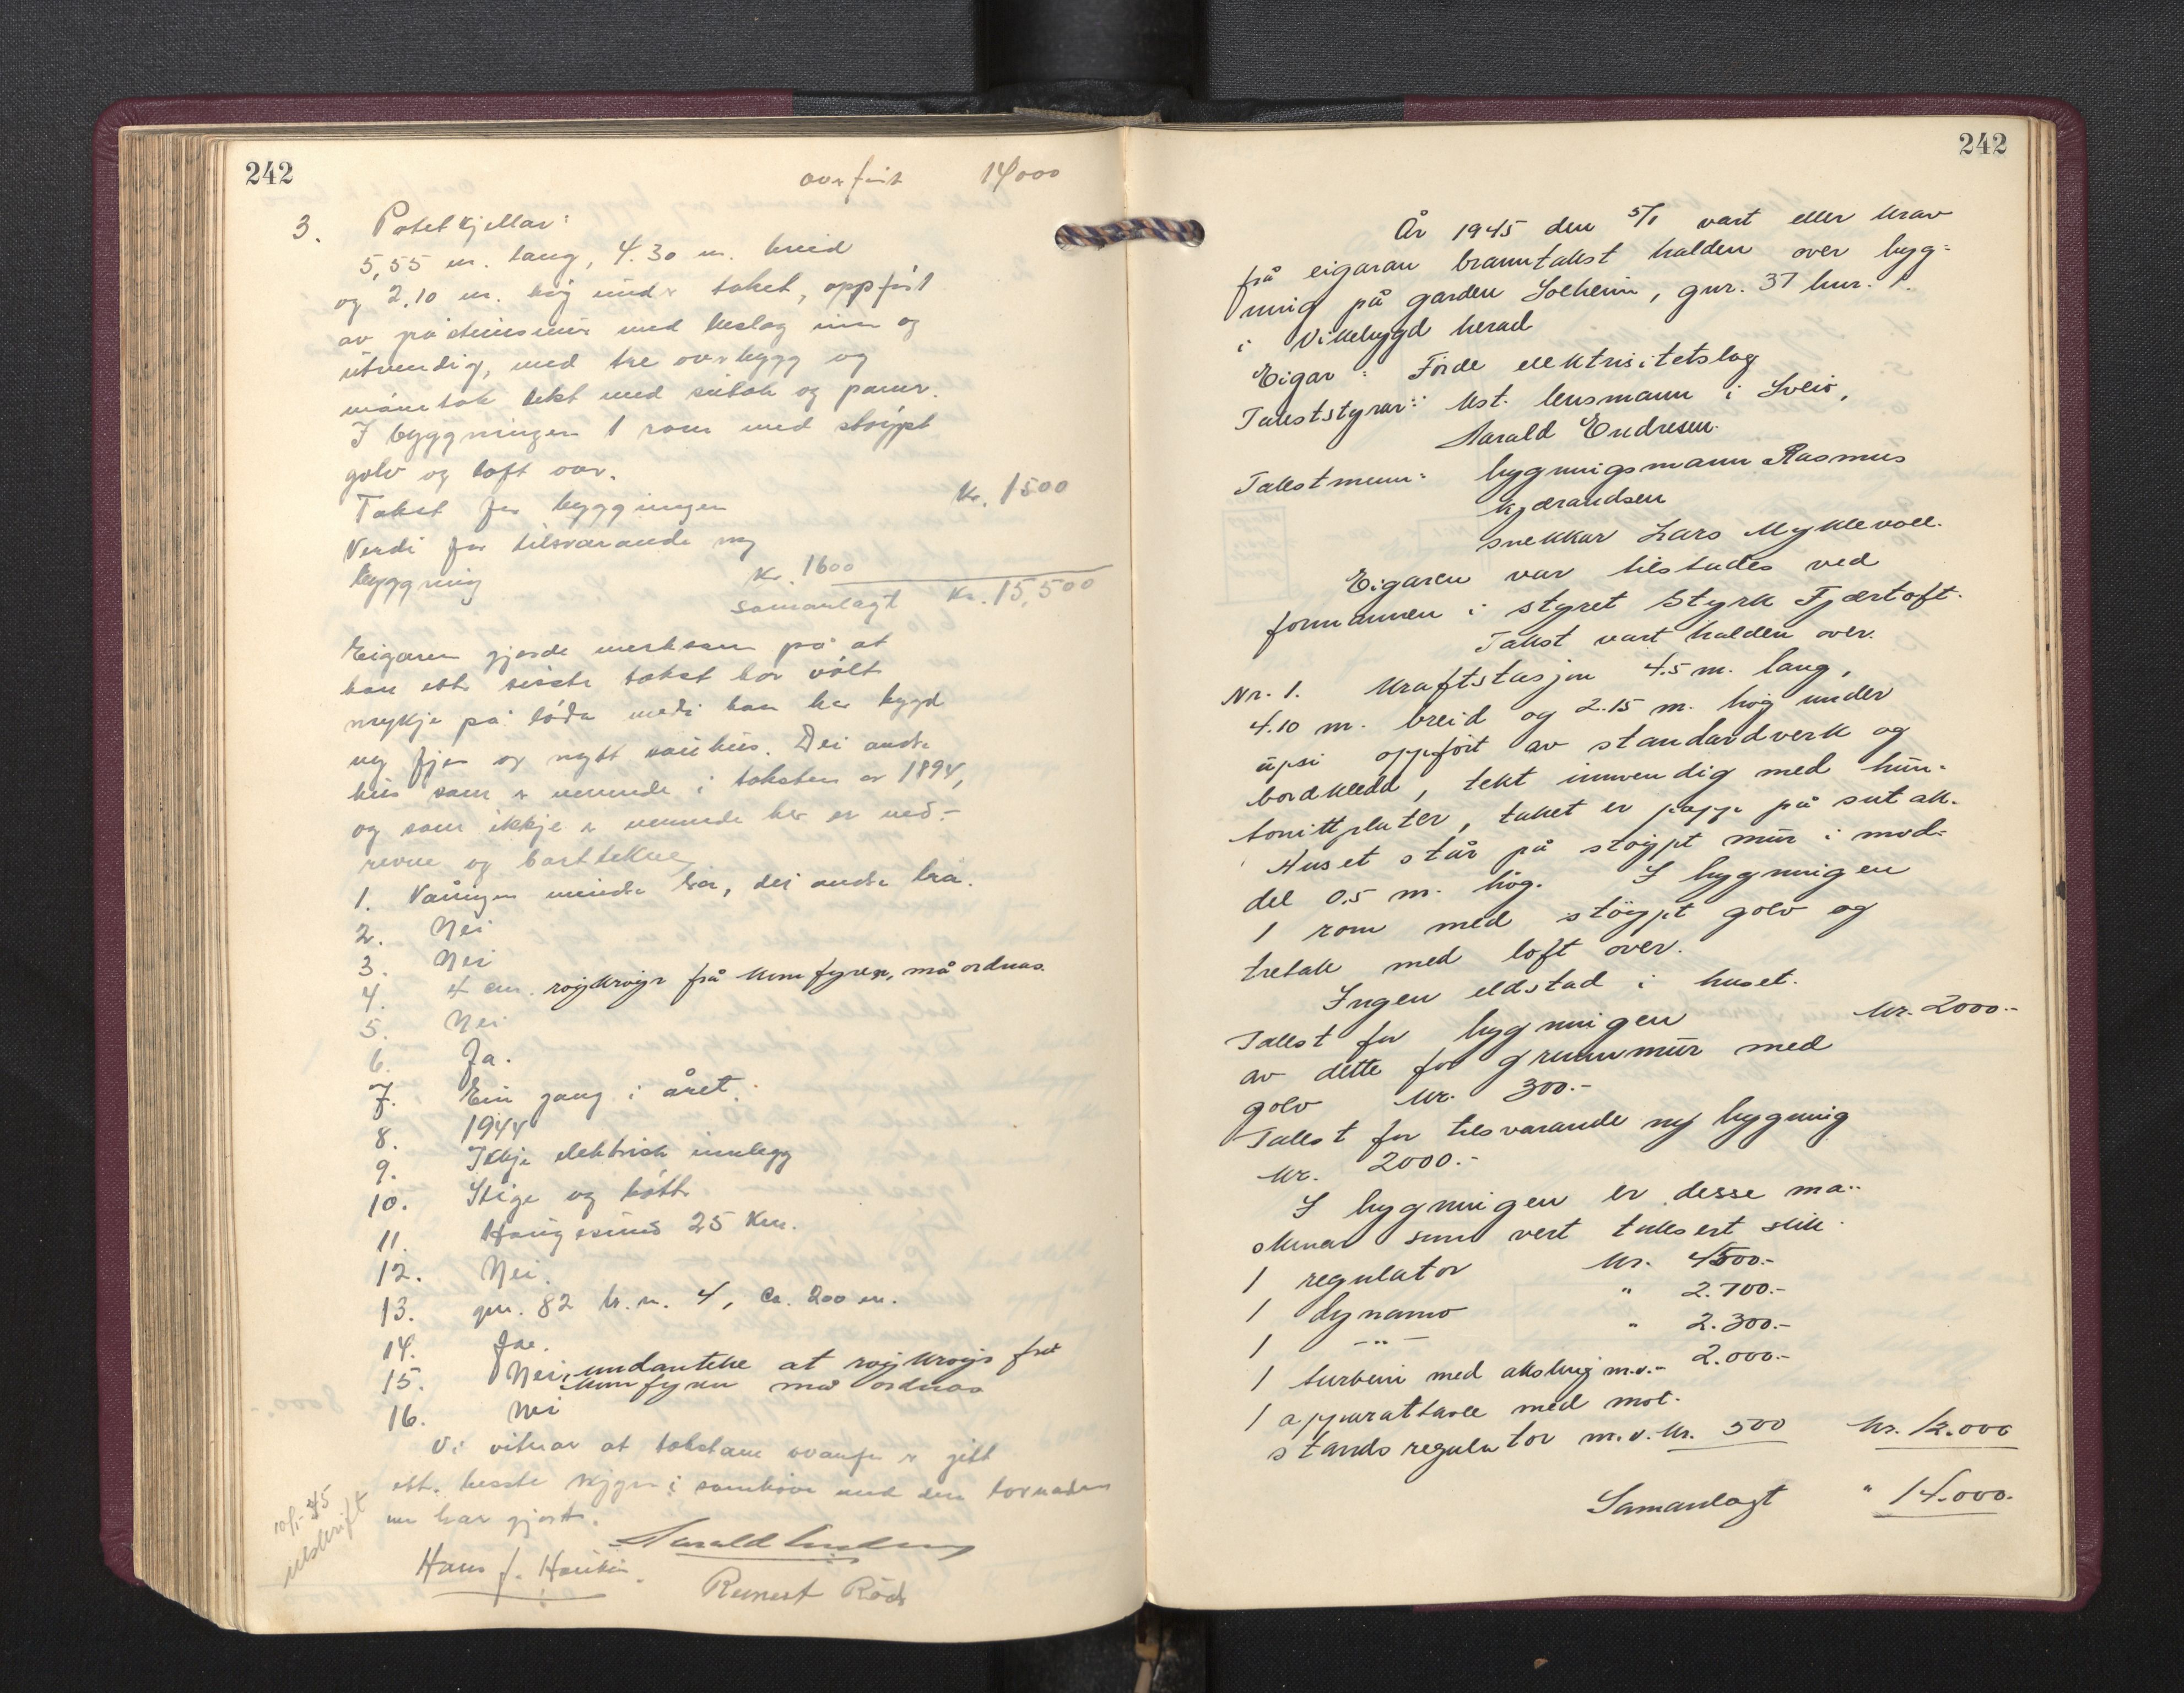 242
overført 14000
3. Potetkjellar:
5,55 m. lang, 4.30 m. breid
og 2.10 m. høg under taket, oppført
av gråsteinsmur med beslag inn og
utvendig, med tre overbygg og
møne tak tekt med sutak og panner.
I byggningen 1 rom med støypt
golv og loft over.
Takst for byggningen Kr. 1500
Verdi for tilsvarande ny
byggning Kr. 1600
samanlagt Kr. 15,500
Eigaren gjorde merksam på at
han ette siste takst har vølt
mykje på løda medi han har bygd
ny fjøs og nytt sauhus. Dei andre
hus som er nemnde i taksten av 1894,
og som ikkje er nemnde her er ned-
revne og borttekne.
1. Våningen mindre bra, dei andre bra.
2. Nei
3. Nei
4. 4 cm. røykrøyr frå komfyren, må ordnas.
5. Nei
6. Ja.
7. Ein gang i året.
8. 1944
9. Ikkje elektrisk innlegg
10. Stige og bøtte
11. Haugesund 25 km.
12. Nei.
13. gnr. 82 br.n. 4, ca. 200 m.
14. Jae.
15. Nei, undanteke at røykrøyr frå
komfyren må ordnas
16. Nei
Vi vitnar at takstane ovanfor er gitt
ette beste skjøn i samhøve med den
me har gjort.
10/1-45
utskrift
Harald Endresen
Hans J.
Røds
242
År 1945 den 5/1 vart etter krav
frå eigaran branntakst halden over byg=
ning på garden Solheim, gnr. 37 bnr. 1.
i Vikebygd herad
Eigar: Förde elektrisitetslag
Takststyrar: Kst. lensmann i Sveio,
Harald Endresen.
Takstmenn: bygningsmann Rasmus
Kjærandsen
snekkar Lars Myklevoll.
Eigaren var tilstades ved
formannen i styret Styrk Fjærtoft.
Takst vart halden over.
Nr. 1. Kraftstasjon 4.5 m. lang,
4.10 m. breid og 2.15 m. høg under
upsi oppført av standardverk og
bordkledd, tekt innvendig med hun-
tonittplater, taket er papp på sutak.
Huset står på støypt mur i med-
del 0.5 m. høg. I bygningen
1 rom med støypt golv og
tretak med loft over.
Ingen eldstad i huset.
Takst for bygningen kr. 2000.-
av dette for grunnmur med
golv kr. 300.-
Takst for tilsvarande ny bygning
kr. 2000.-
I bygningen er desse ma-
skinar som vert taksert slik.
1 regulator kr. 4500.-
1 dynamo " 2.700.-
1 -"- " 2.300.-
1 turbin med aksling m.v.- 2.000.-
1 apparattavle med mot-
standsregulator m.v. kr. 500 kr. 12.000
Samanlagt " 14.000.